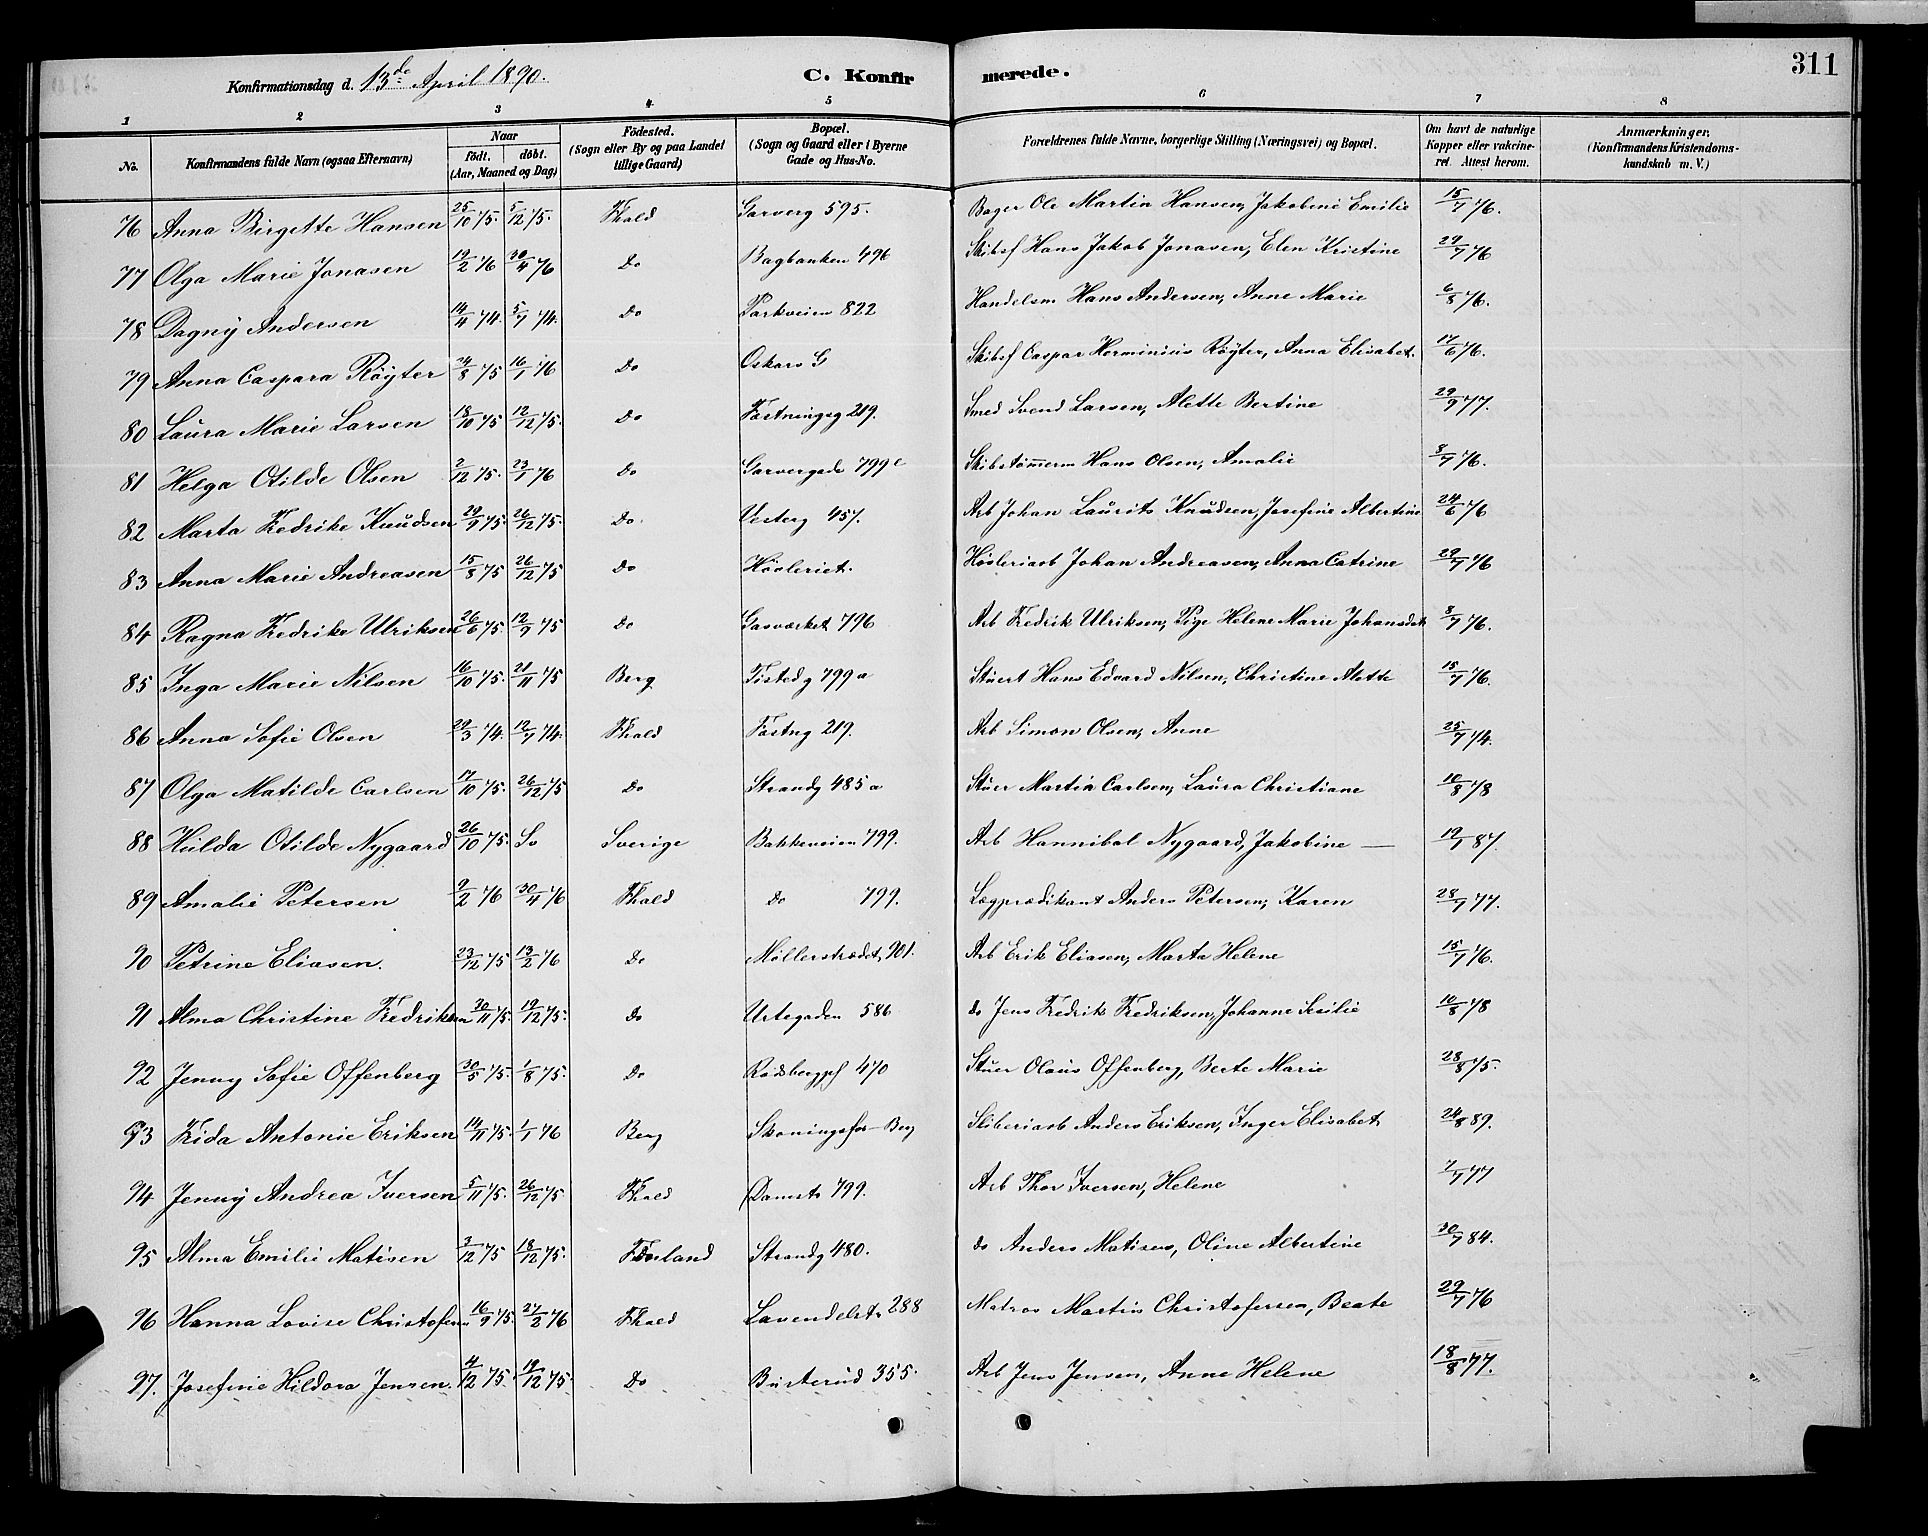 311
Konfirmationsdag d. 13de April 1890. C. Konfir merede.
1 2 3 4 5 6 7 8
No. Konfirmandens fulde Navn (ogsaa Efternavn) Naar födt. döbt. (Aar, Maaned og Dag) Födested. (Sogn eller By og paa Landet tillige Gaard) Bopæl. (Sogn og Gaard eller i Byerne Gade og Hus-No. Forældrenes fulde Navne, borgerlige Stilling (Næringsvei) og Bopæl. Om havt de naturlige Kopper eller vakcineret. Attest herom. Anmærkninger. (Konfirmandens Kristendomskundskab m. V.)
76 Anna Birgette Hansen 25/10 75. 5/12 75. Fhald Garverg 595. Bager Ole Martin Hansen, Jakobine Emilie 15/7 76.
77 Olga Marie Jonasen 19/2 76 30/4 76 Do Bagbanken 496 Skibsf Hans Jakob Jonasen, Elen Kristine 29/7 76
78 Dagny Andersen 14/4 74. 5/7 74. Do Parkveien 822 Handelsm Hans Andersen, Anne Marie 6/8 76.
79 Anna Caspara Röyter 24/8 75 16/1 76 Do Oskars G Skibsf Caspar Herminius Röyter, Anna Elisabet. 17/6 76.
80 Laura Marie Larsen 18/10 75 12/12 75. Do Fæstningsg 219. Smed Svend Larsen, Alette Bertine 29/9 77.
81 Helga Otilde Olsen 2/12 75. 23/1 76 Do Garvergade 799c Skibstömmerm Hans Olsen, Amalie 8/7 76.
82 Marta Fredrike Knudsen 29/9 75. 26/12 75. Do. Vesterg 457. Arb Johan Laurits Knudsen, Josefine Albertine 24/6 76
83 Anna Marie Andreasen 15/8 75 26/12 75 Do Hövleriet. Hövleriarb Johan Andreasen, Anna Catrine 29/7 76
84 Ragna Fredrike Ulriksen 26/6 75. 12/9 75 Do Gasværket 796 Arb Fredrik Ulriksen, Pige Helene Marie Johansdt 8/7 76.
85 Inga Marie Nilsen 16/10 75. 21/11 75 Berg Tistedg 799a Stuert Hans Edvard Nilsen, Christine Mette 15/7 76.
86 Anna Sofie Olsen 29/3 74. 12/7 74. Fhald Fæstng 219. Arb Simon Olsen, Anne 25/7 74.
87 Olga Matilde Carlsen 17/10 75. 26/12 75 Do Strandg 485a Stuer Martin Carlsen, Laura Christiane 10/8 78
88 Hulda Otilde Nygaard 26/10 75. Do Sverige Bakkeveien 799. Arb Hannibal Nygaard, Jakobine — 19/7 87.
89 Amalie Petersen 9/2 76 30/4 76 Fhald Do 799. Lægprædikant Anders Petersen, Karen 28/7 77.
90 Petrine Eliasen. 23/12 75 13/2 76 Do Möllerstrædet 901. Arb Erik Eliasen, Marta Helene 15/7 76.
91 Alma Christine Fredriksen 30/11 75. 19/12 75. Do Urtegaden 586 do Jens Fredrik Fredriksen, Johanne Sesilie 10/8 78
92 Jenny Sofie Offenberg 30/5 75. 1/8 75. Do Rödsbergpl 470 Stuer Olaus Offenberg, Berte Marie 28/8 75.
93 Frida Antonie Eriksen 14/11 75. 1/1 76 Berg Skoningsfos Berg Sliberiarb Anders Eriksen, Inger Elisabet 24/8 89.
94 Jenny Andrea Iversen 5/11 75. 26/12 75 Fhald Damstr 799. Arb Thor Iversen, Helene 7/7 77
95 Alma Emilie Matisen 3/12 75 18/12 75. Strandg 480. do Anders Matisen, Oline Albertine 30/7 84.
96 Hanna Lovise Christofersen 16/9 75. 27/2 76 Fhald Lavendelstr 288 Matros Martin Christofersen, Beate 29/7 76
97. Josefine Hildora Jensen. 4/12 75. 19/12 75. Do Busterud 355. Arb Jens Jensen, Anne Helene 18/8 77.